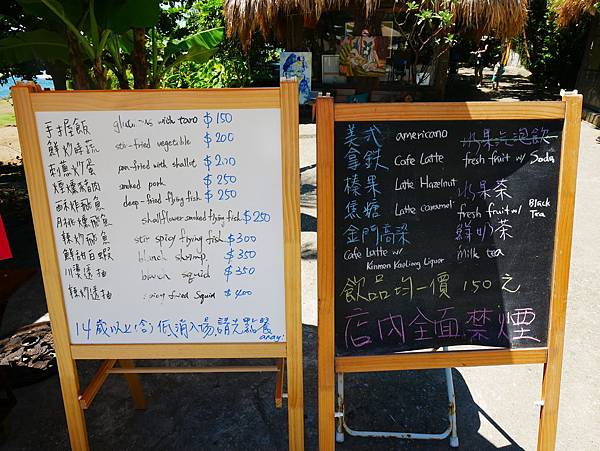 手握飯 with taro $150
鮮炒時蔬 stir-fried vegetable $200
刺蔥炒蛋 pan-fried with shallot $200
煙燻豬肉 smoked pork $250
酥炸飛魚 deep-fried flying fish $250
月桃燻飛魚 shellflower smoked flying fish $250
辣炒飛魚 stir spicy flying fish $300
鮮甜白蝦 shrimp $350
川燙透抽 squid $350
辣炒透抽 fried squid $400
14歲以上(含)低消入場,請先點餐
美式 americano
拿鐵 Cafe Latte
榛果 Latte Hazelnut
焦糖 Latte caramel
金門高梁
Cafe Latte w/
Kinmen Kaoliang Liquor
水果气泡飲
fresh fruit w/ Soda
水果茶
fresh fruit w/ Black Tea
鮮奶茶
milk tea
飲品均一價 150元
店內全面禁煙